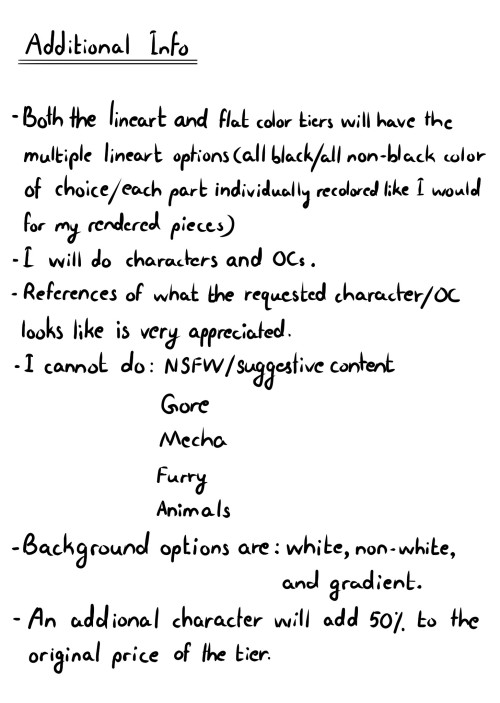 Additional Info
-Both the lineart and flat color tiers will have the
multiple lineart options (all black/all non-black color
of choice/each part individually recolored like I would
for my rendered pieces)
-I will do characters and OCs.
-References of what the requested character/OC
looks like is very appreciated.
-I cannot do: NSFW/suggestive content
Gore
Mecha
Furry
Animals
-Background options are: white, non-white,
and gradient.
- An addional character will add 50% to the
original price of the tier.